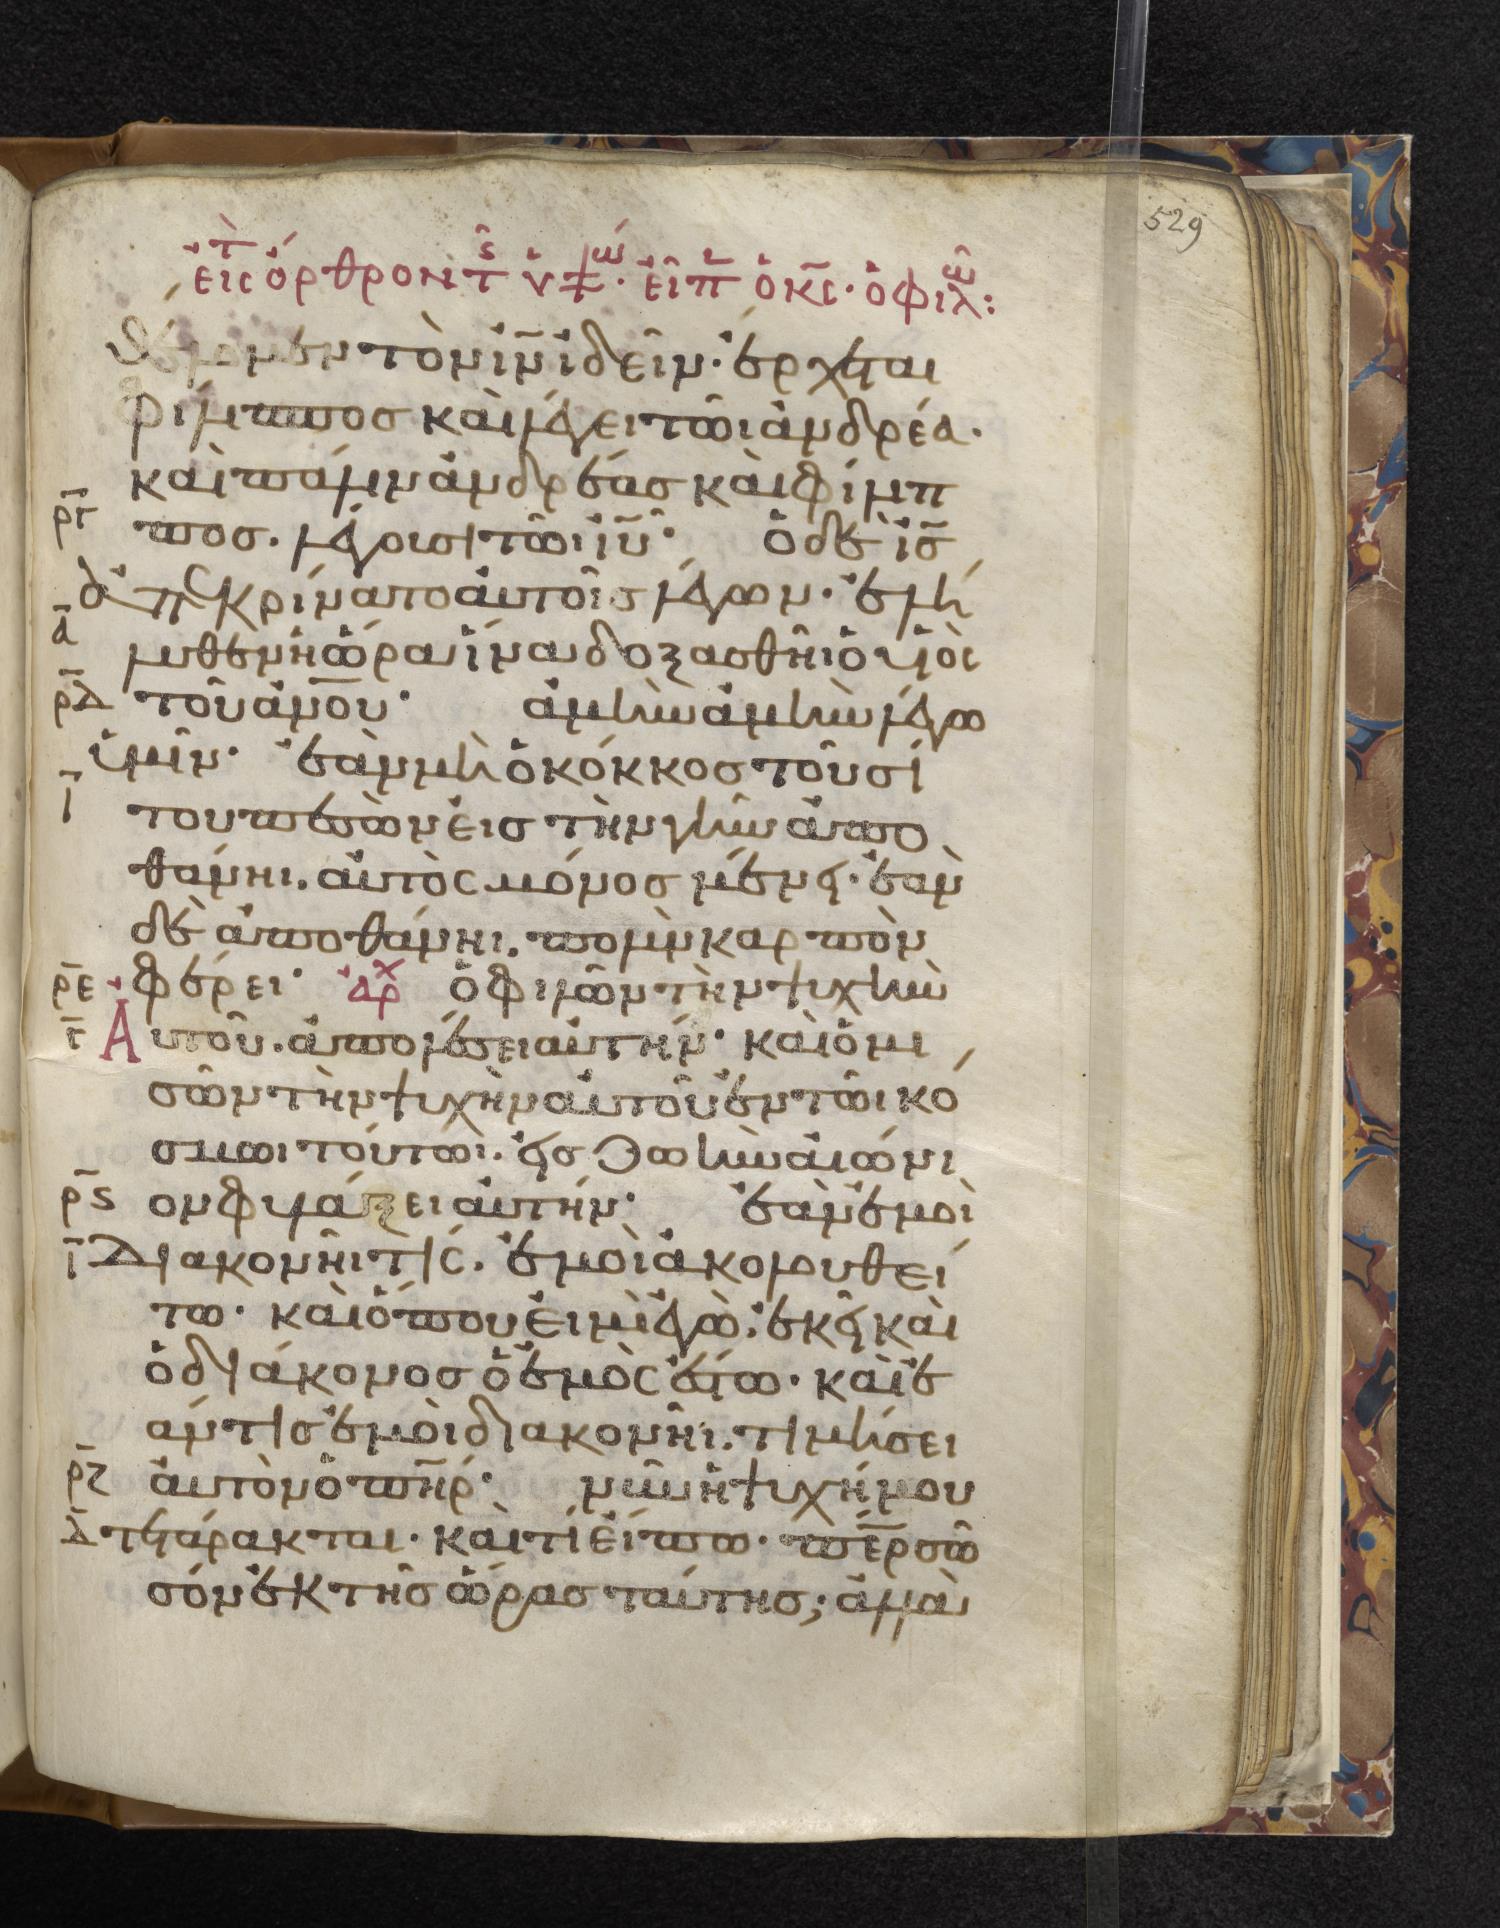 529
εἰς τὸ ὄρθρον τῆς ὑψώ· εἶπ ὁ κς· ὁ φιλῶ:
θέλομεν τὸν ιν ἰδεῖν· ἔρχεται
φίλιππος καὶ λέγει τῶι ἀνδρέα·
καὶ πάλιν ἀνδρέας καὶ φίλιπ
ρΓ πος. λέγουσι τῶι ιυ· ὁ δὲ ις
ἀπεκρίνατο αὐτοῖς λέγων· ἐλή
α λυθεν ἡ ὥρα ἵνα δοξασθῆι ὁ υἱὸς
ρΔ τοῦ ανου· ἀμὴν ἀμὴν λέγω
ὑμῖν· ἐὰν μὴ ὁ κόκκος τοῦ σί
ι του πεσὼν εἰς τὴν γῆν ἀπο
θάνηι. αὐτὸς μόνος μένει· ἐὰν
δὲ ἀποθάνηι. πολὺν καρπὸν
ρε φέρει· ἀρχ ὁ φιλῶν τὴν ψυχὴν
Γ Αυτοῦ. ἀπολέσει αὐτήν· καὶ ὁ μι
σῶν τὴν ψυχὴν αὐτοῦ ἐν τῶι κό
σμωι τούτωι. εἰς ζωὴν αἰώνι
ρς ον φυλάξει αὐτήν· ἐὰν ἐμοὶ
ι Διακονῆι τίς. ἐμοὶ ἀκολουθεί
τω· καὶ ὅπου εἰμὶ ἐγὼ. ἐκεῖ καὶ
ὁ διάκονος ὁ ἐμὸς ἔσται· καὶ ἐ
άν τις ἐμοὶ διακονῆι. τιμήσει
ρζ αὐτὸν ὁ πηρ· νῦν ἡ ψυχή μου
Δ τετάρακται· καὶ τί εἴπω· περ σῶ
σόν με ἐκ τῆς ὥρας ταύτης; ἀλλὰ